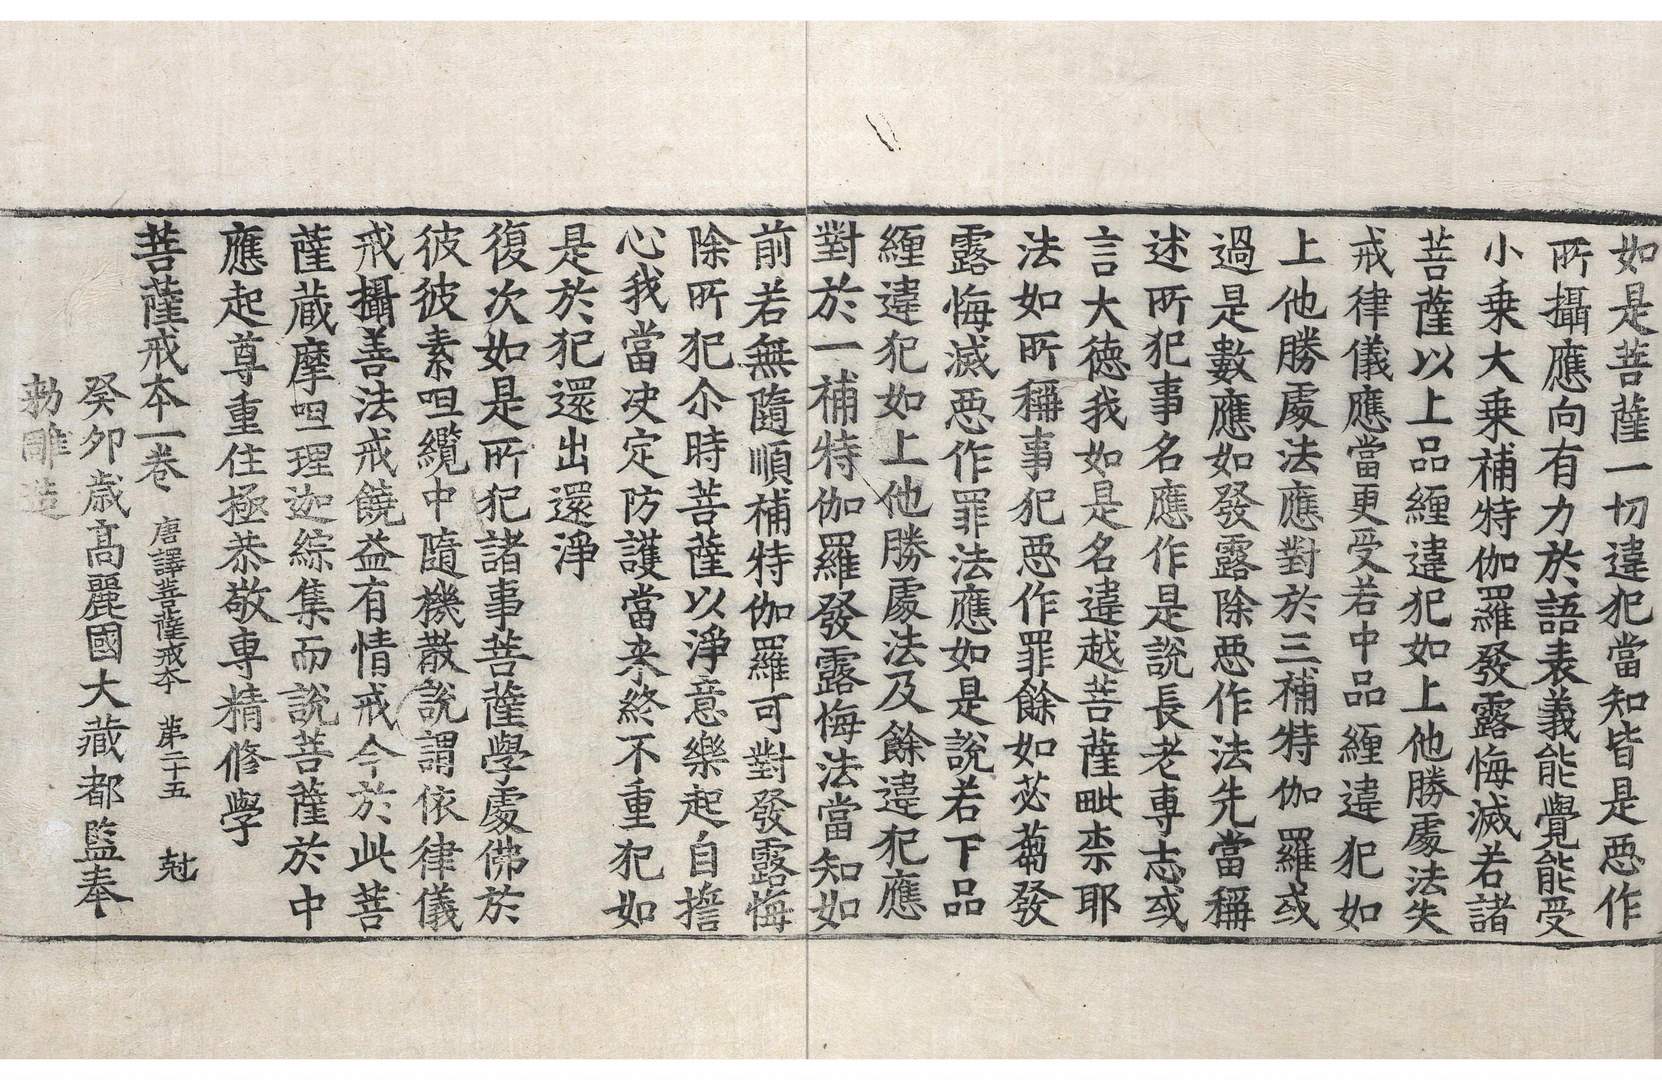 如是菩薩一切違犯當知皆是惡作
所攝應向有力於語表義能覺能受
小乘大乘補特伽羅發露悔滅若諸
菩薩以上品纏違犯如上他勝處法失
戒律儀應當更受若中品纏違犯如
上他勝處法應對於三補特伽羅或
過是數應如發露除惡作法先當稱
述所犯事名應作是說長老專志或
言大德我如是名違越菩薩毗柰耶
法如所稱事犯惡作罪餘如苾蒭發
露悔滅惡作罪法應如是說若下品
纏違犯如上他勝處法及餘違犯應
對於一補特伽羅發露悔法當知如
前若無隨順補特伽羅可對發露悔
除所犯尒時菩薩以淨意樂起自擔
心我當決定防護當来終不重犯如
是於犯還出還淨
復次如是所犯諸事菩薩學處佛於
彼彼素呾纜中隨機散說謂依律儀
戒攝善法戒饒益有情戒今於此菩
薩藏摩呾理迦綜集而說菩薩於中
應起尊重住極恭敬專精修學
菩薩戒本一卷 唐譯菩薩戒本 第二十五 尅
癸卯歲高麗國大藏都監奉
勅雕造